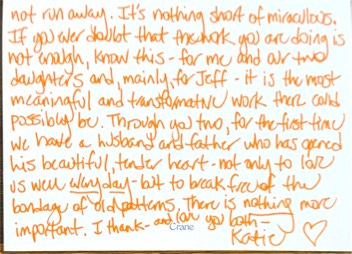 not run away. It's nothing short of miraculous.
If you ever doubt that the work you are doing is
not enough, know this - for me and our two
daughters and, mainly, for Jeff - it is the most
meaningful and transformative work there could
possibly be. Through you two, for the first time
we have a husband and father who has opened
his beautiful, tender heart - not only to love
us well every day - but to break free of the
bondage of old patterns. There is nothing more
important. I thank - and love you both -
Crane
Katie ♡